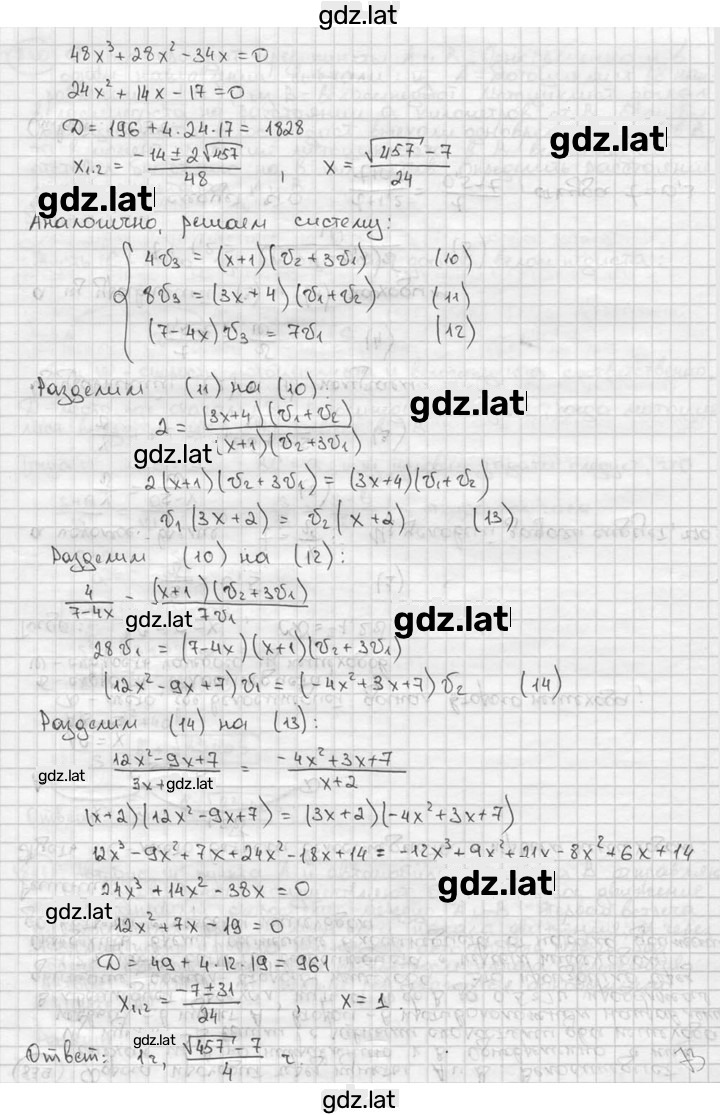 gdz.lat
48x³ + 28x² - 34x = 0
24x² + 14x - 17 = 0
D = 196 + 4·24·17 = 1828
gdz.lat
x₁,₂ = (-14 ± 2√457)/48 , x = (√457 - 7)/24
gdz.lat
Аналогично, решаем систему:
4v₃ = (x+1)(v₂ + 3v₁) (10)
8v₃ = (3x+4)(v₁+v₂) (11)
(7-4x)v₃ = 7v₁ (12)
Разделим (11) на (10):
gdz.lat
2 = (3x+4)(v₁+v₂)/(x+1)(v₂+3v₁)
gdz.lat
2(x+1)(v₂+3v₁) = (3x+4)(v₁+v₂)
v₁(3x+2) = v₂(x+2) (13)
Разделим (10) на (12):
4/(7-4x) = (x+1)(v₂+3v₁)/7v₁
gdz.lat
gdz.lat
28v₁ = (7-4x)(x+1)(v₂+3v₁)
(12x²-9x+7)v₁ = (-4x²+3x+7)v₂ (14)
Разделим (14) на (13):
(12x²-9x+7)/3x+ = (-4x²+3x+7)/(x+2)
gdz.lat
gdz.lat
(x+2)(12x²-9x+7) = (3x+2)(-4x²+3x+7)
12x³ - 9x² + 7x + 24x² - 18x + 14 = -12x³ + 9x² + 21x - 8x² + 6x + 14
24x³ + 14x² - 38x = 0
gdz.lat
gdz.lat
12x² + 7x - 19 = 0
D = 49 + 4·12·19 = 961
x₁,₂ = (-7±31)/24 , x = 1
gdz.lat
Ответ: 1г, (√457 - 7)/4 г
73
gdz.lat